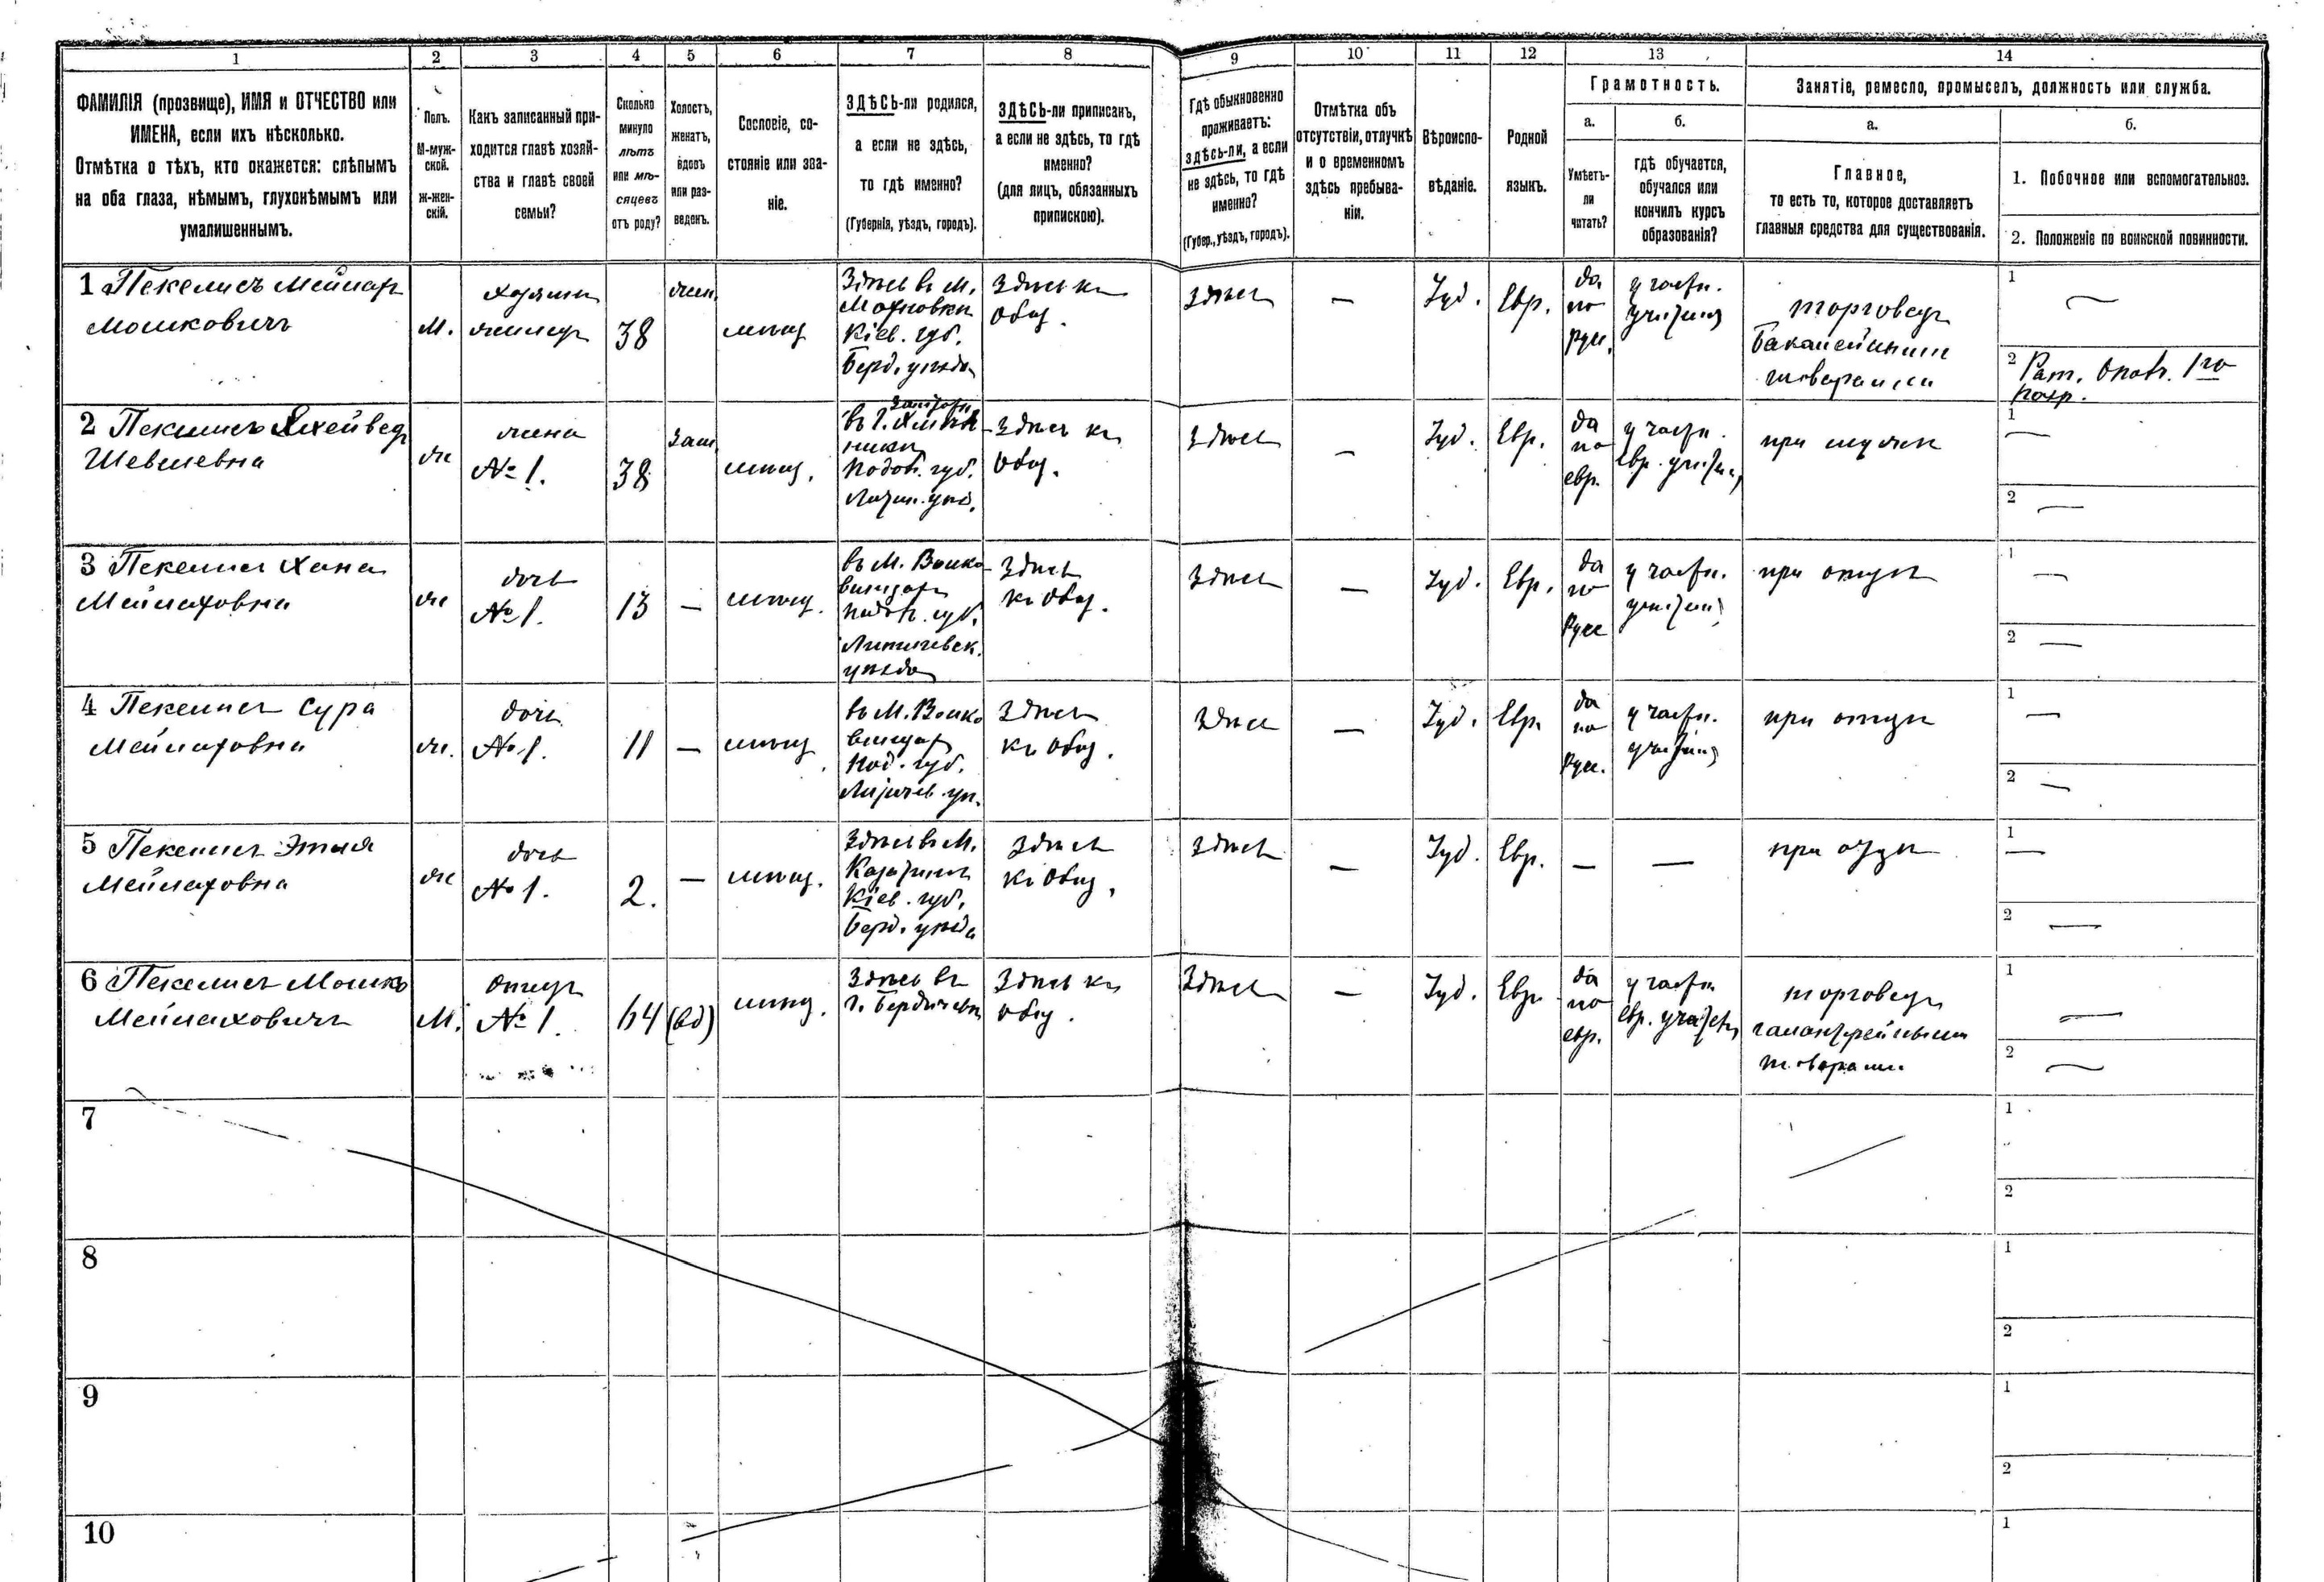 1
2
3
4
5
6
7
8
9
10
11
12
13
14
ФАМИЛІЯ (прозвище), ИМЯ и ОТЧЕСТВО или
ИМЕНА, если ихъ нѣсколько.
Отмѣтка о тѣхъ, кто окажется: слѣпымъ
на оба глаза, нѣмымъ, глухонѣмымъ или
умалишеннымъ.
Полъ.
М-муж-
ской.
ж-жен-
скій.
Какъ записанный при-
ходится главѣ хозяй-
ства и главѣ своей
семьи?
Сколько
минуло
лѣтъ
или мѣ-
сяцевъ
отъ роду?
Холостъ,
женатъ,
вдовъ
или раз-
веденъ.
Сословіе, со-
стояніе или зва-
ніе.
ЗДѢСЬ-ли родился,
а если не здѣсь,
то гдѣ именно?
(Губернія, уѣздъ, городъ).
ЗДѢСЬ-ли приписанъ,
а если не здѣсь, то гдѣ
именно?
(для лицъ, обязанныхъ
припискою).
Гдѣ обыкновенно
проживаетъ:
здѣсь-ли, а если
не здѣсь, то гдѣ
именно?
(Губер., уѣздъ, городъ).
Отмѣтка объ
отсутствіи, отлучкѣ
и о временномъ
здѣсь пребыва-
ніи.
Вѣроиспо-
вѣданіе.
Родной
языкъ.
Грамотность.
а.
Умѣетъ-
ли
читать?
б.
гдѣ обучается,
обучался или
кончилъ курсъ
образованія?
Занятіе, ремесло, промыселъ, должность или служба.
а.
Главное,
то есть то, которое доставляетъ
главныя средства для существованія.
б.
1. Побочное или вспомогательное.
2. Положеніе по воинской повинности.
1 Пекелисъ Мейлах
Мошковичъ
М.
хозяинъ
38
жен.
мѣщ
Здѣсь в М.
Махновки
Кіев. губ.
Берд. уѣзда
Здѣсь къ
общ.
Здѣсь
—
Іуд.
Евр.
да
по
рус.
у частн.
торговец
бакалейными
товарами
1
—
2 Рат. опол. 1го
разр.
2 Пекелисъ
Шевелевна
ж
жена
№ 1.
38
зам.
мѣщ.
Подол. губ.
Здѣсь къ
общ.
Здѣсь
—
Іуд.
Евр.
да
по
евр.
у частн.
евр.
при мужѣ
1
—
2
—
3 Пекелисъ Хана
Мейлаховна
ж
дочь
№ 1.
13
—
мѣщ.
въ М. Волко-
винцах
Подол. губ.
Литичевск.
уѣзда
Здѣсь
къ общ.
Здѣсь
—
Іуд.
Евр.
да
по
Русс
у частн.
при отцѣ
1
—
2
—
4 Пекелисъ Сура
Мейлаховна
ж.
дочь
№ 1.
11
—
мѣщ
въ М. Волко
винцах
Под. губ.
Здѣсь
къ общ.
Здѣсь
—
Іуд.
Евр.
да
по
Русс.
у частн.
при отцѣ
1
—
2
—
5 Пекелисъ Этля
Мейлаховна
ж
дочь
№ 1.
2.
—
мѣщ.
Здѣсь въ М.
Казатинъ
Кіев. губ.
Берд. уѣзда
Здѣсь
къ общ.
Здѣсь
—
Іуд.
Евр.
—
—
при отцѣ
1
—
2
—
6 Пекелисъ Мошко
Мейлаховичъ
М.
отец
№ 1.
64
(вд)
мѣщ.
Здѣсь въ
г. Бердичевѣ
Здѣсь къ
общ.
Здѣсь
—
Іуд.
Евр.
да
по
евр.
у частн
евр.
торговец
галантерейными
товарами
1
—
2
—
7
1
2
8
1
2
9
1
2
10
1